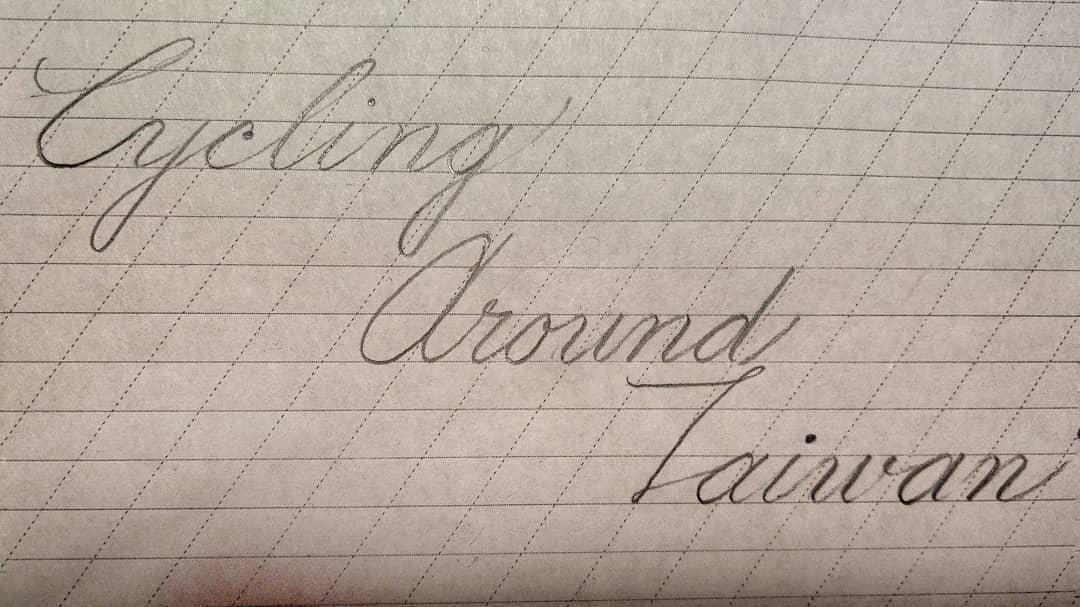 Cycling
Around
Taiwan